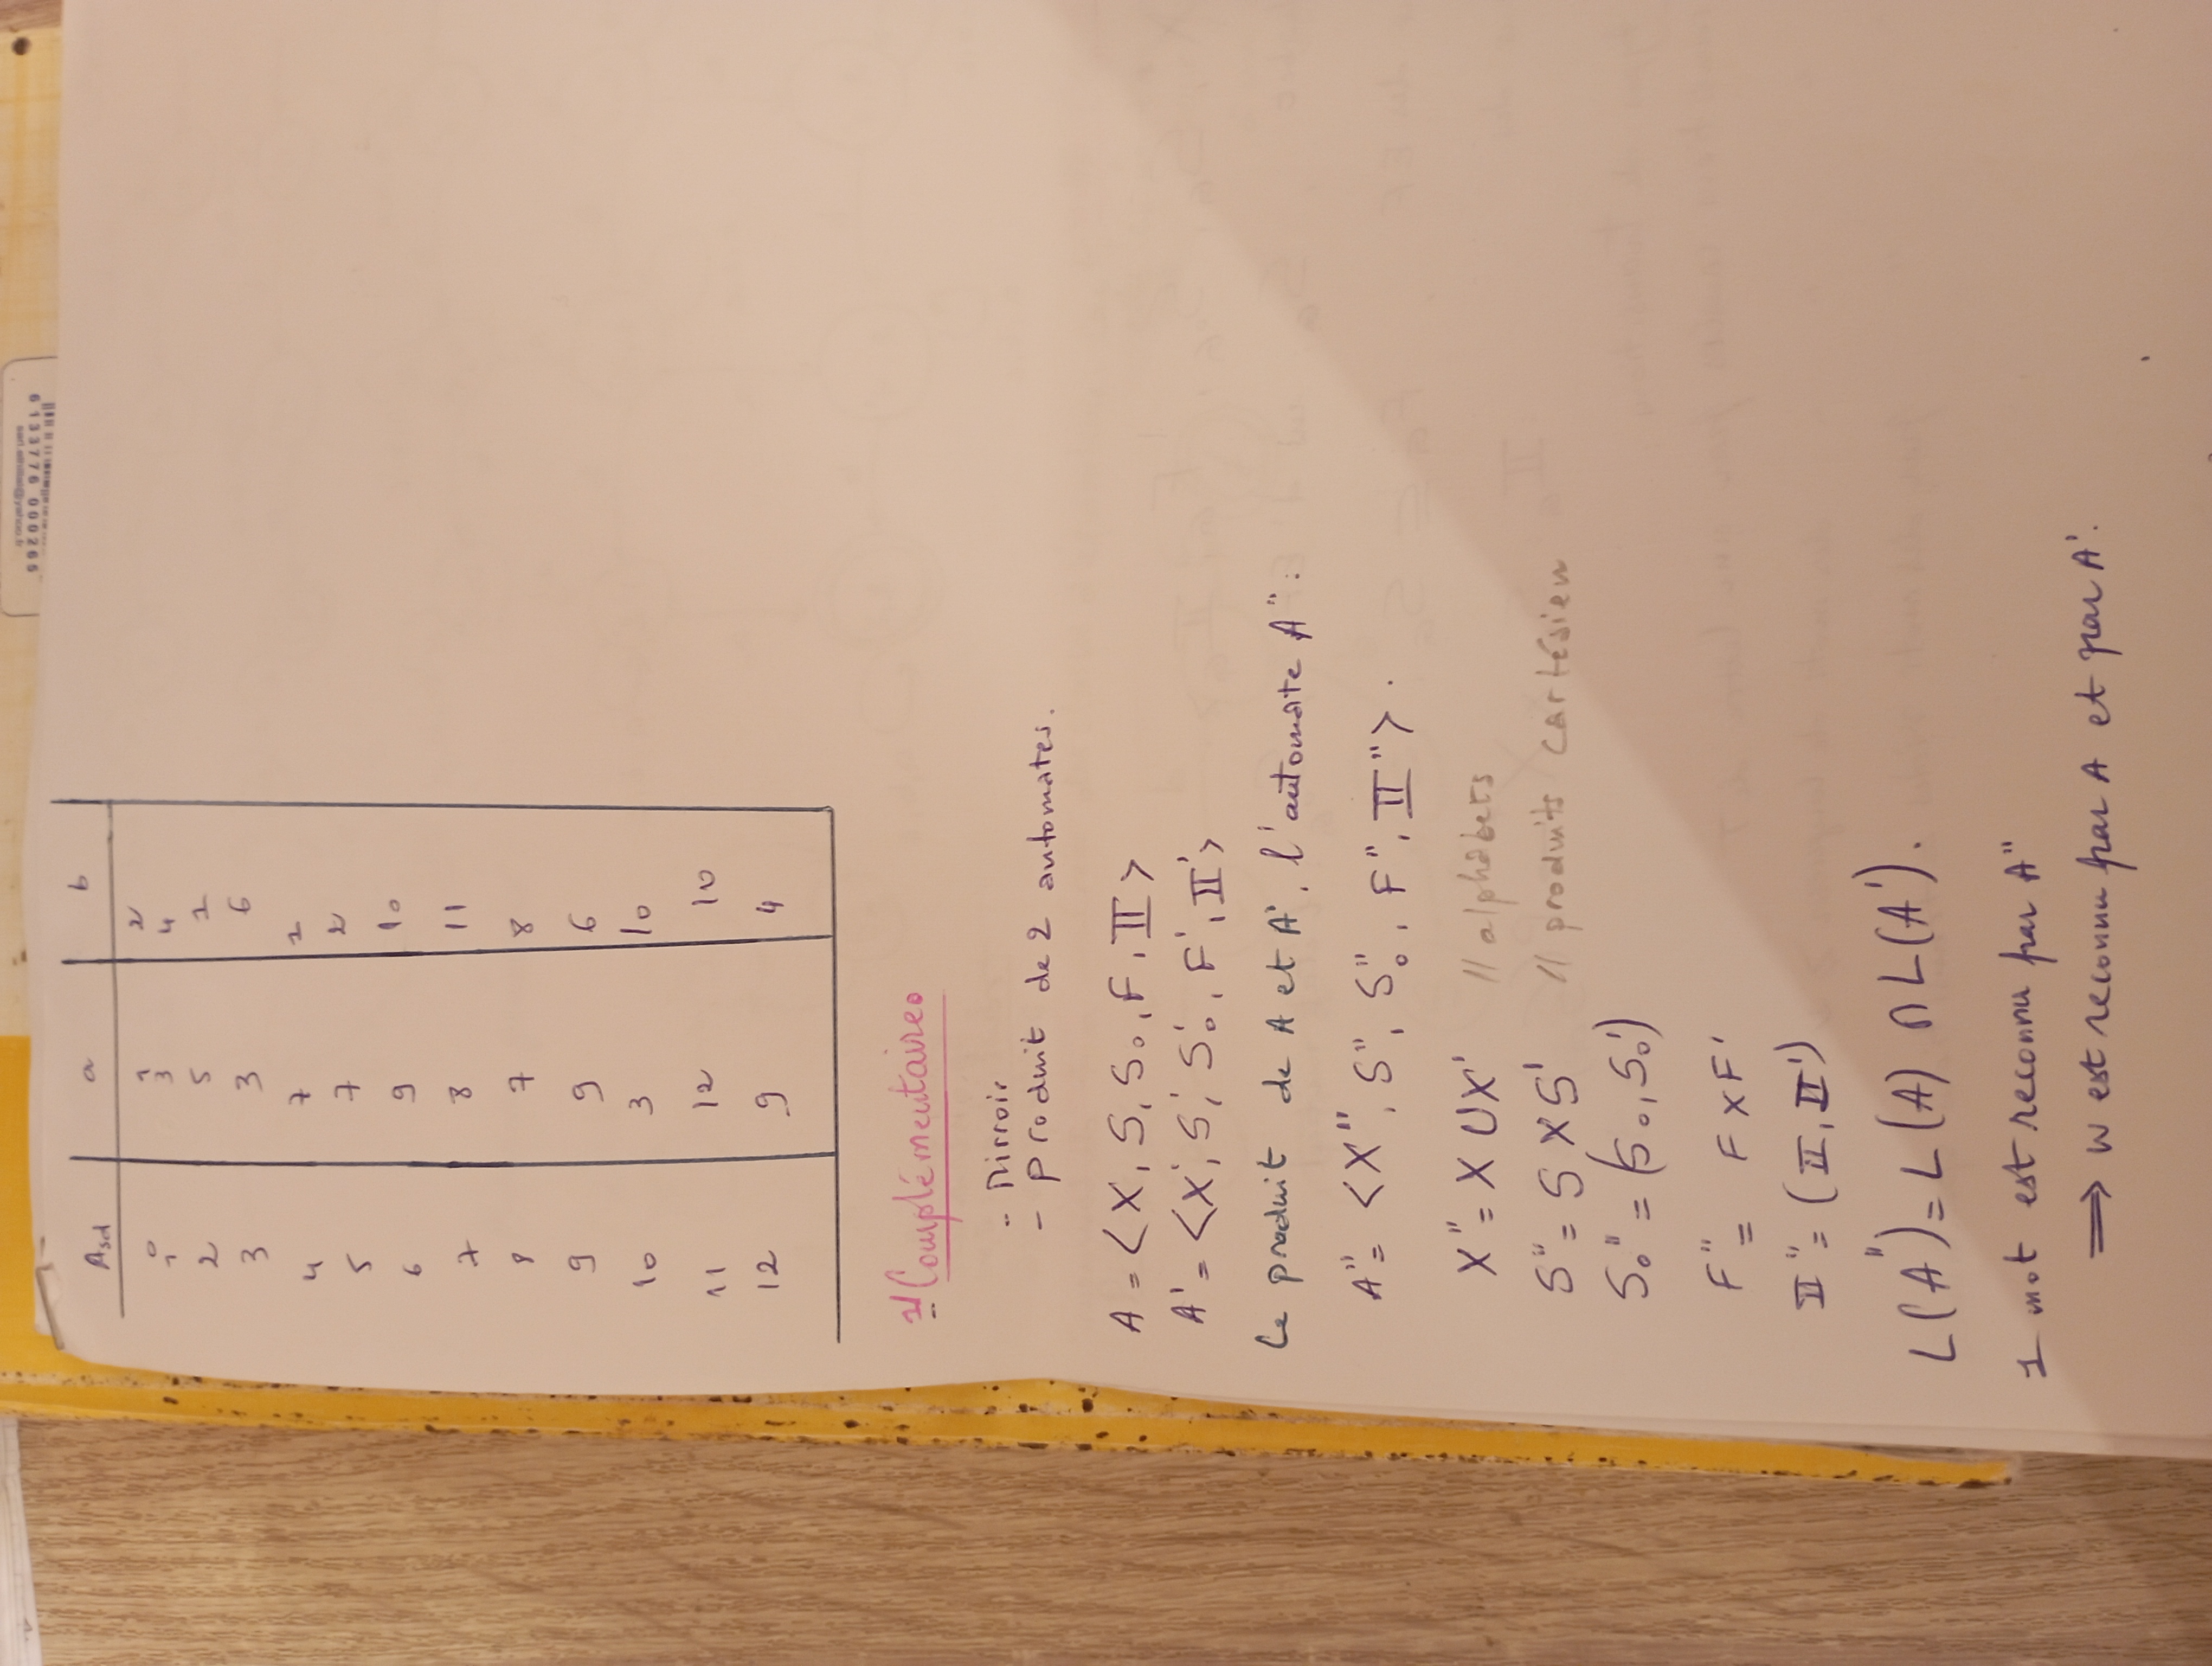 san.elhillal@yahoo.fr
6 133776 000265
Asd a b
0 1 2
1 3 4
2 5 1
3 3 6
4 7 1
5 7 2
6 9 10
7 8 11
8 7 8
9 9 6
10 3 10
11 12 10
12 9 4
Complémentaire
- Mirroir
- produit de 2 automates.
A = <X, S, S0, F, II>
A' = <X', S', S'0, F', II'>
Le produit de A et A', l'automate A'' :
A'' = <X'', S'', S''0, F'', II''>.
X'' = X ∪ X' // alphabets
S'' = S X S' // produits cartésien
S0'' = (S0, S0')
F'' = F x F'
II'' = (II, II')
L(A'') = L(A) ∩ L(A').
1 mot est reconnu par A''
⟹ w est reconnu par A et par A'.